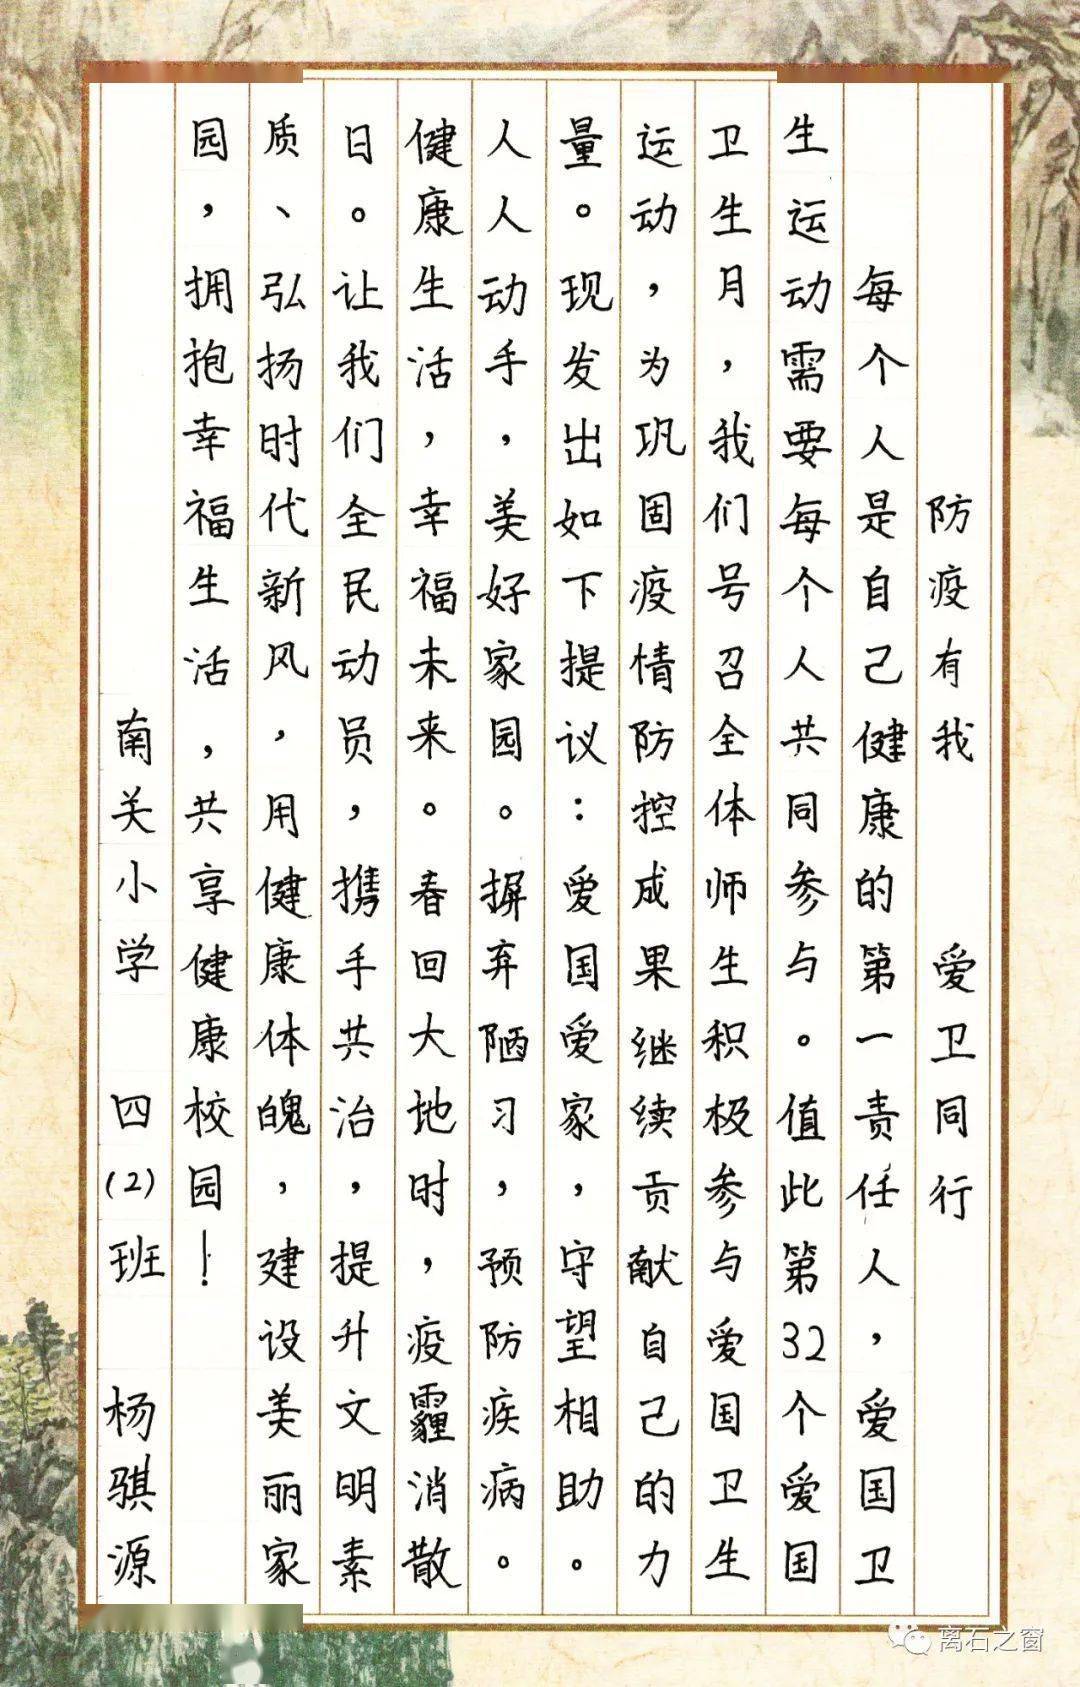 防疫有我 爱卫同行
每个人是自己健康的第一责任人，爱国卫
生运动需要每个人共同参与。值此第32个爱国
卫生月，我们号召全体师生积极参与爱国卫生
运动，为巩固疫情防控成果继续贡献自己的力
量。现发出如下提议：爱国爱家，守望相助。
人人动手，美好家园。摒弃陋习，预防疾病。
健康生活，幸福未来。春回大地时，疫霾消散
日。让我们全民动员，携手共治，提升文明素
质、弘扬时代新风，用健康体魄，建设美丽家
园，拥抱幸福生活，共享健康校园！
南关小学 四(2)班 杨骐源
离石之窗